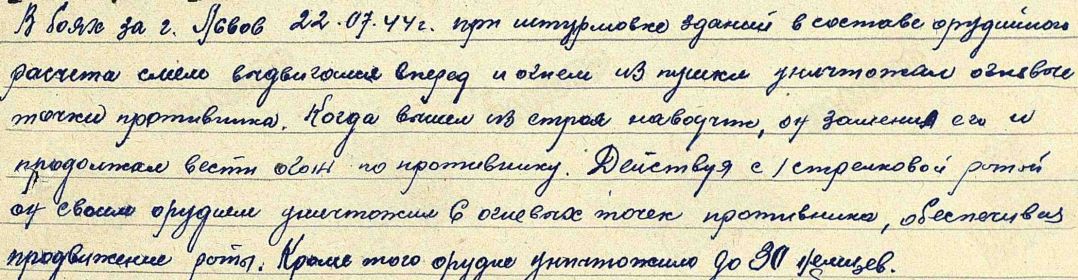 В боях за г. Львов 22.07.44г. при штурмовке зданий в составе орудийного
расчета смело выдвигался вперед и огнем из пушки уничтожал огневые
точки противника. Когда вышел из строя наводчик, он заменил его и
продолжал вести огонь по противнику. Действуя с 1 стрелковой ротой
он своим орудием уничтожил 6 огневых точек противника, обеспечивая
продвижение роты. Кроме того орудие уничтожило до 30 немцев.